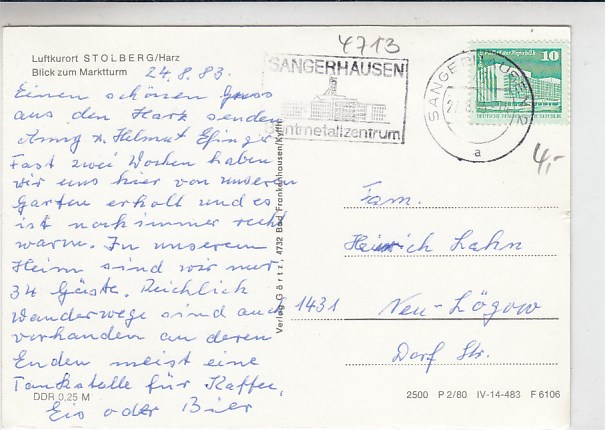 Luftkurort STOLBERG/Harz
Blick zum Marktturm
24.8.83.
Einen schönen Gruss
aus den Harz senden
Anny u. Helmut
Fast zwei Wochen haben
wir uns hier von unseren
Garten erholt und es
ist noch immer recht
warm. In unserem
Heim sind wir nur
34 Gäste. Reichlich
Wanderwege sind auch
vorhanden an deren
Enden meist eine
Tankstelle für Kaffee,
Eis oder Bier
DDR 0.25 M
Verlag Görtz, 4732 Bad Frankenhausen/Kyffh.
4713
SANGERHAUSEN
Buntmetallzentrum
SANGERHAUSEN
a
10
DEUTSCHE DEMOKRATISCHE REPUBLIK
4,-
Fam.
Heinrich Lahn
1431 Neu-Lögow
Dorf Str.
2500 P 2/80 IV-14-483 F 6106